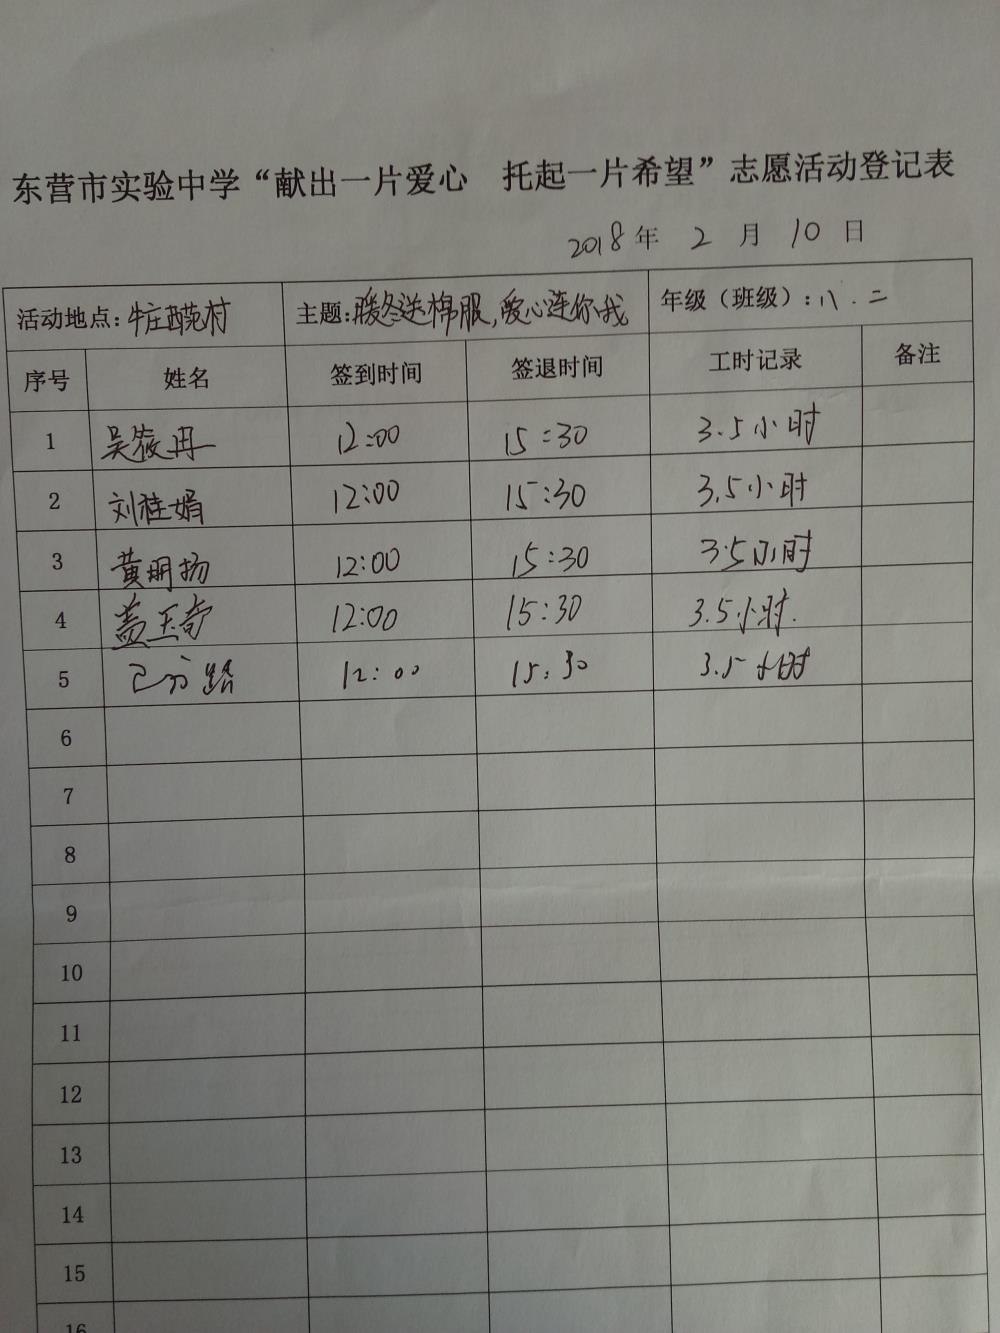 东营市实验中学“献出一片爱心 托起一片希望”志愿活动登记表
2018年 2 月 10 日
活动地点：牛庄西范村 主题：暖冬送棉服，爱心连你我 年级（班级）：八.二
序号 姓名 签到时间 签退时间 工时记录 备注
1 吴筱冉 12:00 15:30 3.5小时
2 刘桂娟 12:00 15:30 3.5小时
3 黄明扬 12:00 15:30 3.5小时
4 盖玉奇 12:00 15:30 3.5小时.
5 12:00 15:30 3.5小时
6
7
8
9
10
11
12
13
14
15
16